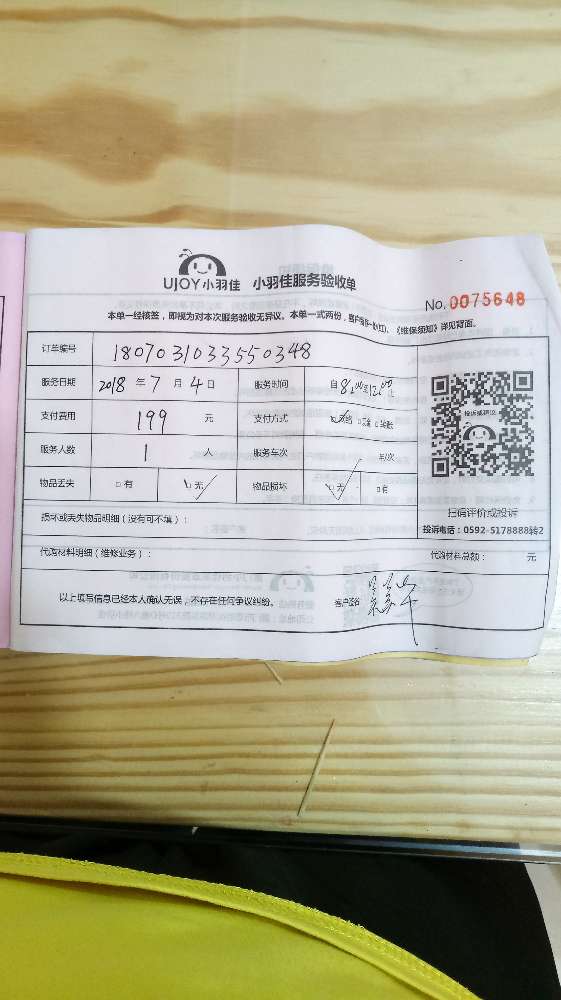 UJOY小羽佳 小羽佳服务验收单
No. 0075648
本单一经核签，即视为对本次服务验收无异议。本单一式两份，客户 《维保须知》详见背面。
订单编号 1807031033550348
服务日期 2018 年 7 月 4 日 服务时间 自 8:00 至 12:00 止
支付费用 199 元 支付方式
投诉或建议
服务人数 1 人 服务车次 车/次
物品丢失 □有 □无 物品损坏 □无 □有
扫码评价或投诉
损坏或丢失物品明细（没有可不填）：
投诉电话：0592-5178888转2
代购材料明细（维修业务）： 代购材料总额： 元
以上填写信息已经本人确认无误，不存在任何争议纠纷。 客户签名